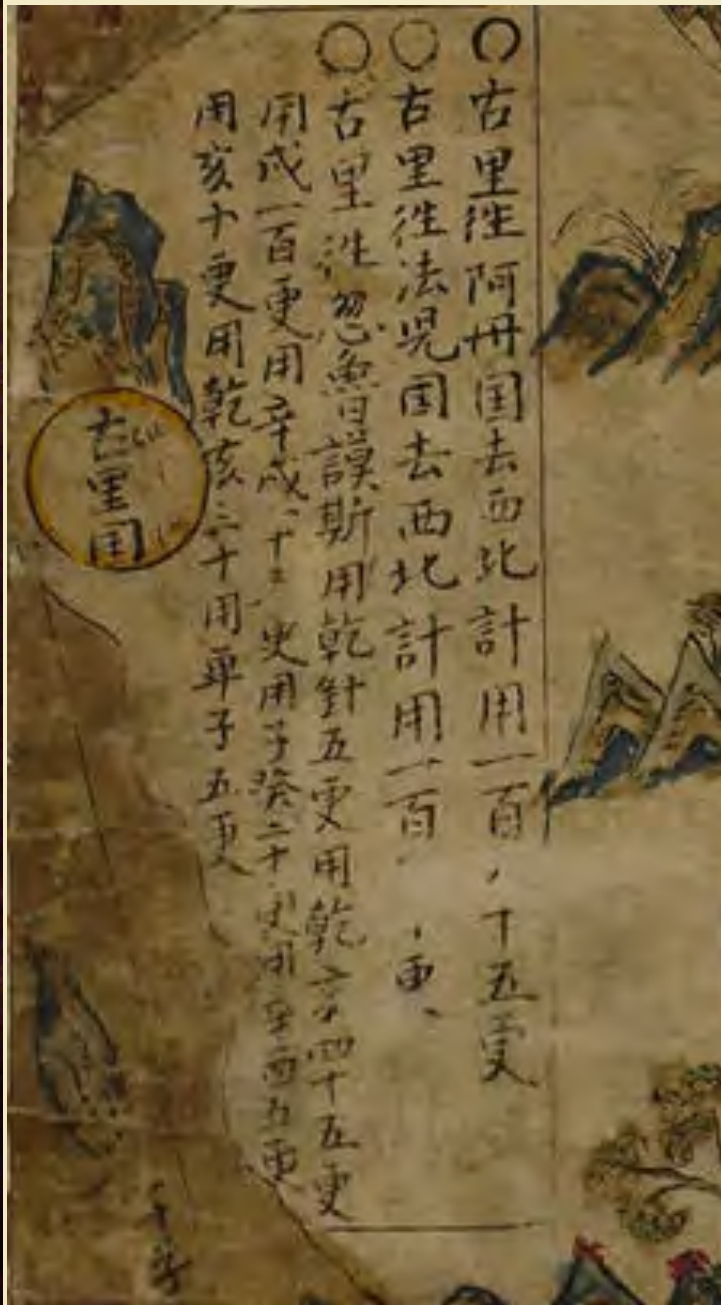 古里徃阿丹国去西北計用一百八十五更
古里徃法児国去西北計用一百 更
古里徃忽魯謨斯用乾針五更用乾亥四十五更
用戌一百更用辛戌 十 更用子癸二十更用辛酉五更
用亥十更用乾亥三十用单子五更
古里国